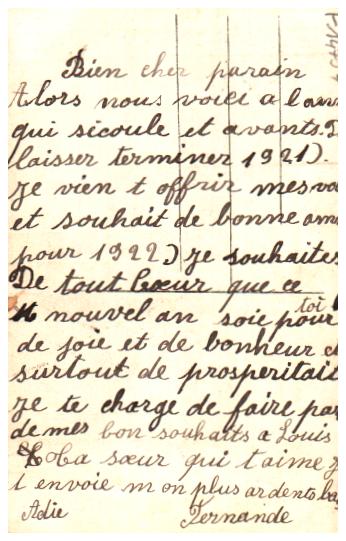 Bien cher parain
Alors nous voici a l'ann
qui sécoule et avants.
laisser terminer 1921).
Je vien t offrir mes vo
et souhait de bonne ann
pour 1922.) je souhaite
De tout cœur que ce
nouvel an soie pour toi
de joie et de bonheur e
surtout de prosperitait
je te charge de faire par
de mes bon souhaits a Louis
Ta sœur qui t'aime
t envoie mon plus ardents ba
Adie Fernande